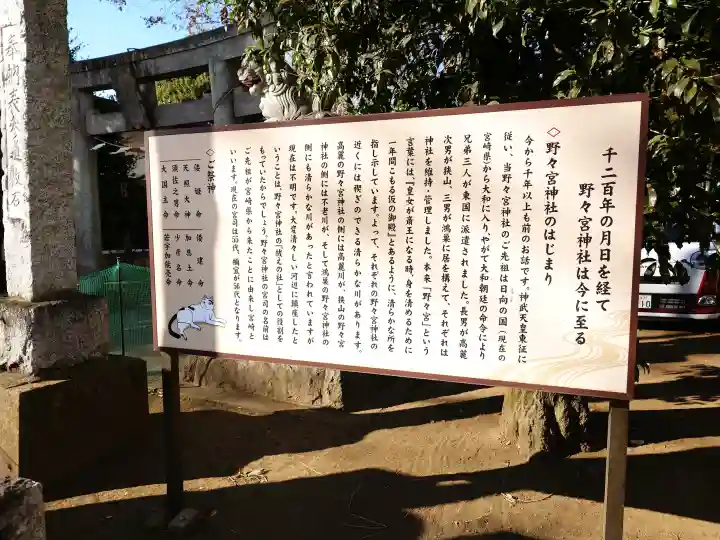 千二百年の月日を経て
野々宮神社は今に至る
◇野々宮神社のはじまり
今から千年以上も前のお話です。神武天皇東征に
従い、当野々宮神社のご先祖は日向の国(現在の
宮崎県)から大和に入り、やがて大和朝廷の命令により
兄弟三人が東国に派遣されました。長男が高麗
次男が狭山、三男が鴻巣に居を構えて、それぞれは
神社を維持・管理しました。本来「野々宮」という
言葉には、「皇女が斎王になる時、身を清めるために
一年間こもる仮の御殿」とあるように、清らかな所を
指し示しています。よって、それぞれの野々宮神社の
近くには禊ぎのできる清らかな川があります。
高麗の野々宮神社の側には高麗川が、狭山の野々宮
神社の側には不老川が、そして鴻巣の野々宮神社の
側にも清らかな川があったと言われていますが
現在は不明です。大変清々しい河辺に鎮座したと
いうことは、野々宮神社の「祓えの社」としての役割を
もっていたからでしょう。野々宮神社の宮司の名前は
ご先祖が宮崎県から来たことに由来し宮崎と
いいます。現在の宮司は55代、禰宜が56代となります。
◇ご祭神
倭姫命 倭建命
天照大神 加志土命
須佐之男命 少彦名命
大国主命 若宇加能売命